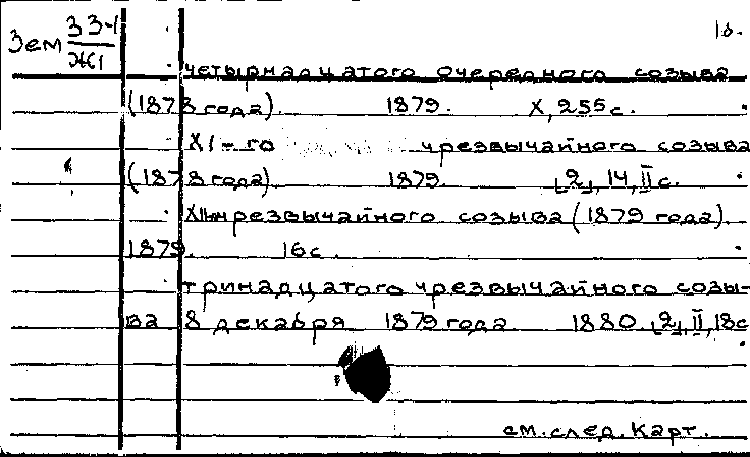 Зем 33-1
Ж1
18.
четырнадцатого очередного созыва
(1878 года). 1879. X, 255 с.
XI-го чрезвычайного созыва
(1878 года). 1879. [2], 14, II с.
XII-чрезвычайного созыва (1879 года).
1879. 16 с.
тринадцатого чрезвычайного созы-
ва 8 декабря 1879 года 1880. [2], II, 18 с
см. след. карт.